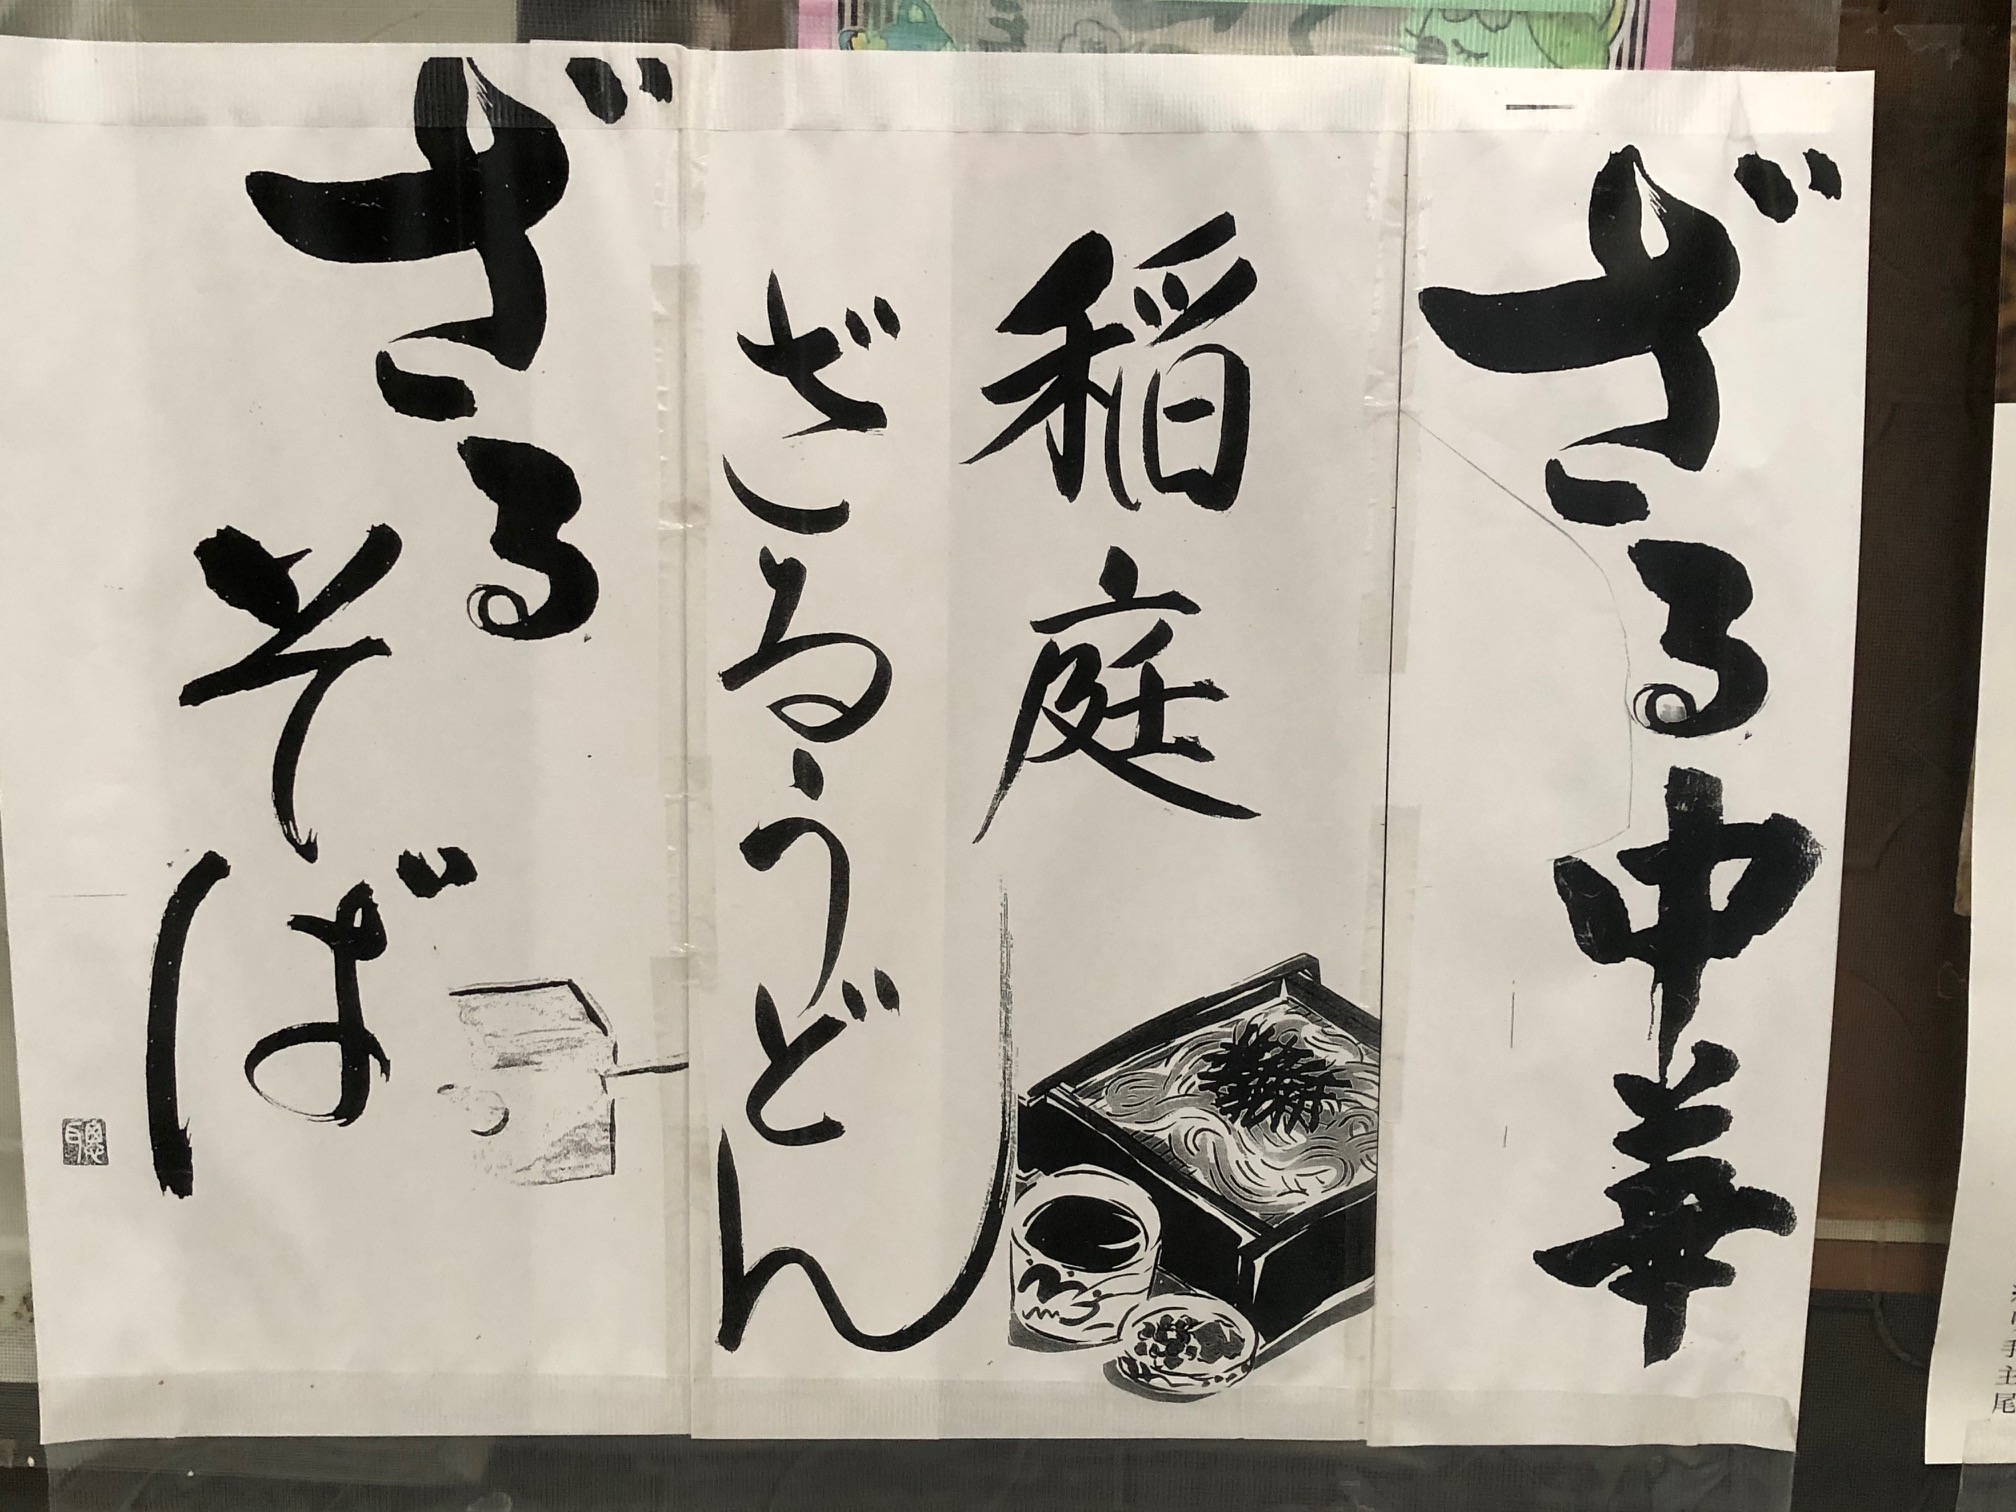 ざる中華
稲庭
ざるうどん
ざる
そば